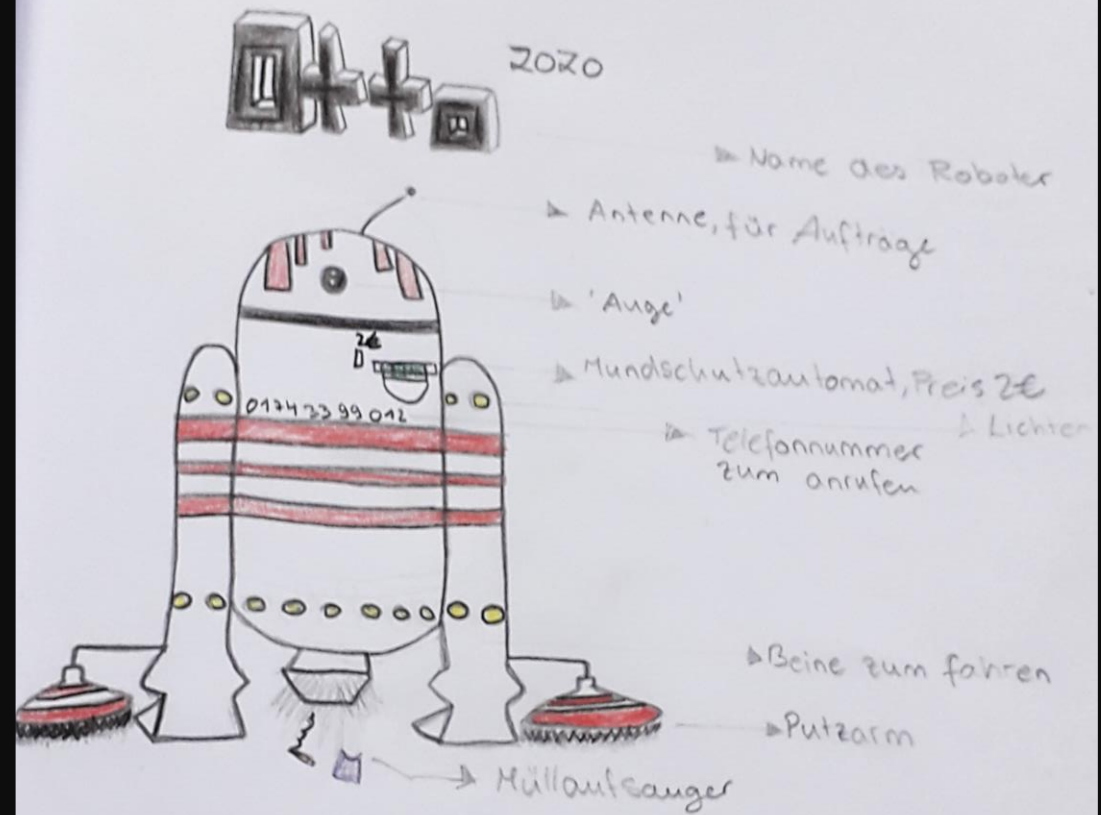 Otto 2020
Name des Roboter
Antenne, für Aufträge
'Auge'
2€
Mundschutzautomat, Preis 2€
0174 33 99 012
Lichter
Telefonnummer
zum anrufen
Beine zum fahren
Putzarm
Müllaufsauger